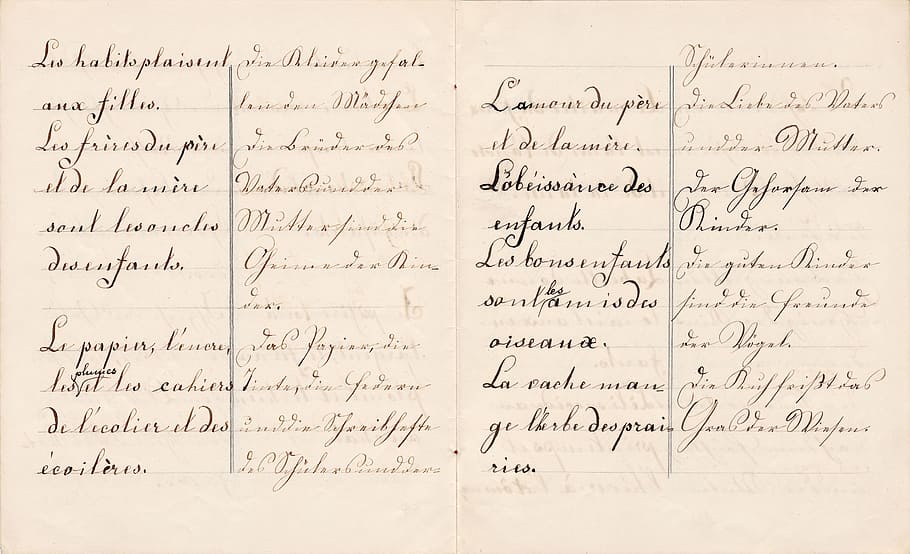 Les habits plaisent
aux filles.
Les frères du père
et de la mère
sont les oncles
des enfants.
Le papier, l'encre,
les plumes et les cahiers
de l'écolier et des
écoilères.
Die Kleider gefal-
len den Mädchen
Die Brüder des
Vaters und der
Mutter sind die
Oheime der Kin-
der.
Das Papier, die
Tinte, die Federn
und die Schreibhefte
des Schülers und der
Schülerinnen.
L'amour du père
et de la mère.
L'obéissance des
enfants.
Les bons enfants
sont les amis des
oiseaux.
La vache man-
ge l'herbe des prai-
ries.
Die Liebe des Vaters
und der Mutter.
Der Gehorsam der
Kinder.
Die guten Kinder
sind die Freunde
der Vögel.
Die Kuh frißt das
Gras der Wiesen.